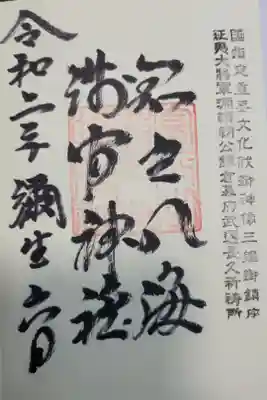 國指定重要文化財御神像三躯御鎮座
征夷大将軍源頼朝公鎌倉幕府武運長久祈祷所
之八海
神社
令和二年彌生六日